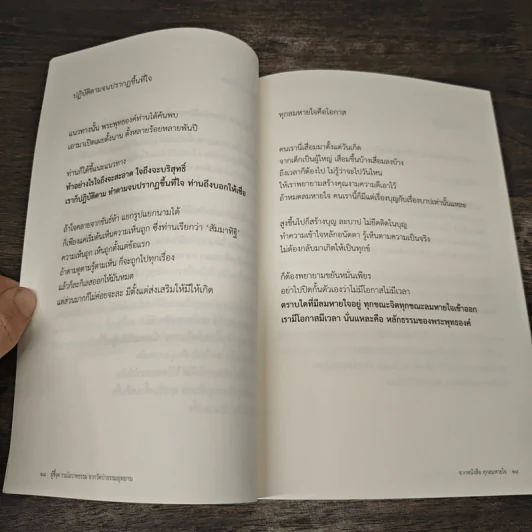 ปฏิบัติตามจนปรากฏขึ้นที่ใจ
แนวทางนั้น พระพุทธองค์ท่านได้ค้นพบ
เอามาเปิดเผยตั้งนาน ตั้งหลายร้อยหลายพันปี
ท่านก็ได้ชี้แนะแนวทาง
ทำอย่างไรใจถึงจะสะอาด ใจถึงจะบริสุทธิ์
เราก็ปฏิบัติตาม ทำตามจนปรากฏขึ้นที่ใจ ท่านถึงบอกให้เชื่อ
ถ้าใจคลายจากขันธ์ห้า แยกรูปแยกนามได้
ก็เพียงแค่เริ่มต้นเห็นความเห็นถูก ซึ่งท่านเรียกว่า ‘สัมมาทิฐิ’
ความเห็นถูก เห็นถูกตั้งแต่ข้อแรก
ถ้าตามดูตามรู้ตามเห็น ก็จะถูกไปทุกเรื่อง
แล้วก็ละกิเลสออกให้มันหมด
แต่ส่วนมากก็ไม่ค่อยจะละ มีตั้งแต่ส่งเสริมให้มีให้เกิด
ทุกลมหายใจคือโอกาส
คนเรานี่เสื่อมมาตั้งแต่วันเกิด
จากเด็กเป็นผู้ใหญ่ เสื่อมขึ้นบ้างเสื่อมลงบ้าง
ถึงเวลาก็ต้องไป ไม่รู้ว่าจะไปวันไหน
ให้เราพยายามสร้างคุณงามความดีเอาไว้
ถ้าหมดลมหายใจ คนเรานี้ก็มีแต่เรื่องบุญกับเรื่องบาปเท่านั้นแหละ
สูงขึ้นไปก็สร้างบุญ ละบาป ไม่ยึดติดในบุญ
ทำความเข้าใจหลักอนัตตา รู้เห็นตามความเป็นจริง
ไม่ต้องกลับมาเกิดให้เป็นทุกข์
ก็ต้องพยายามขยันหมั่นเพียร
อย่าไปปิดกั้นตัวเองว่าไม่มีโอกาสไม่มีเวลา
ตราบใดที่มีลมหายใจอยู่ ทุกขณะจิตทุกขณะลมหายใจเข้าออก
เรามีโอกาสมีเวลา นั่นแหละคือ หลักธรรมของพระพุทธองค์
จากหนังสือ ทุกลมหายใจ